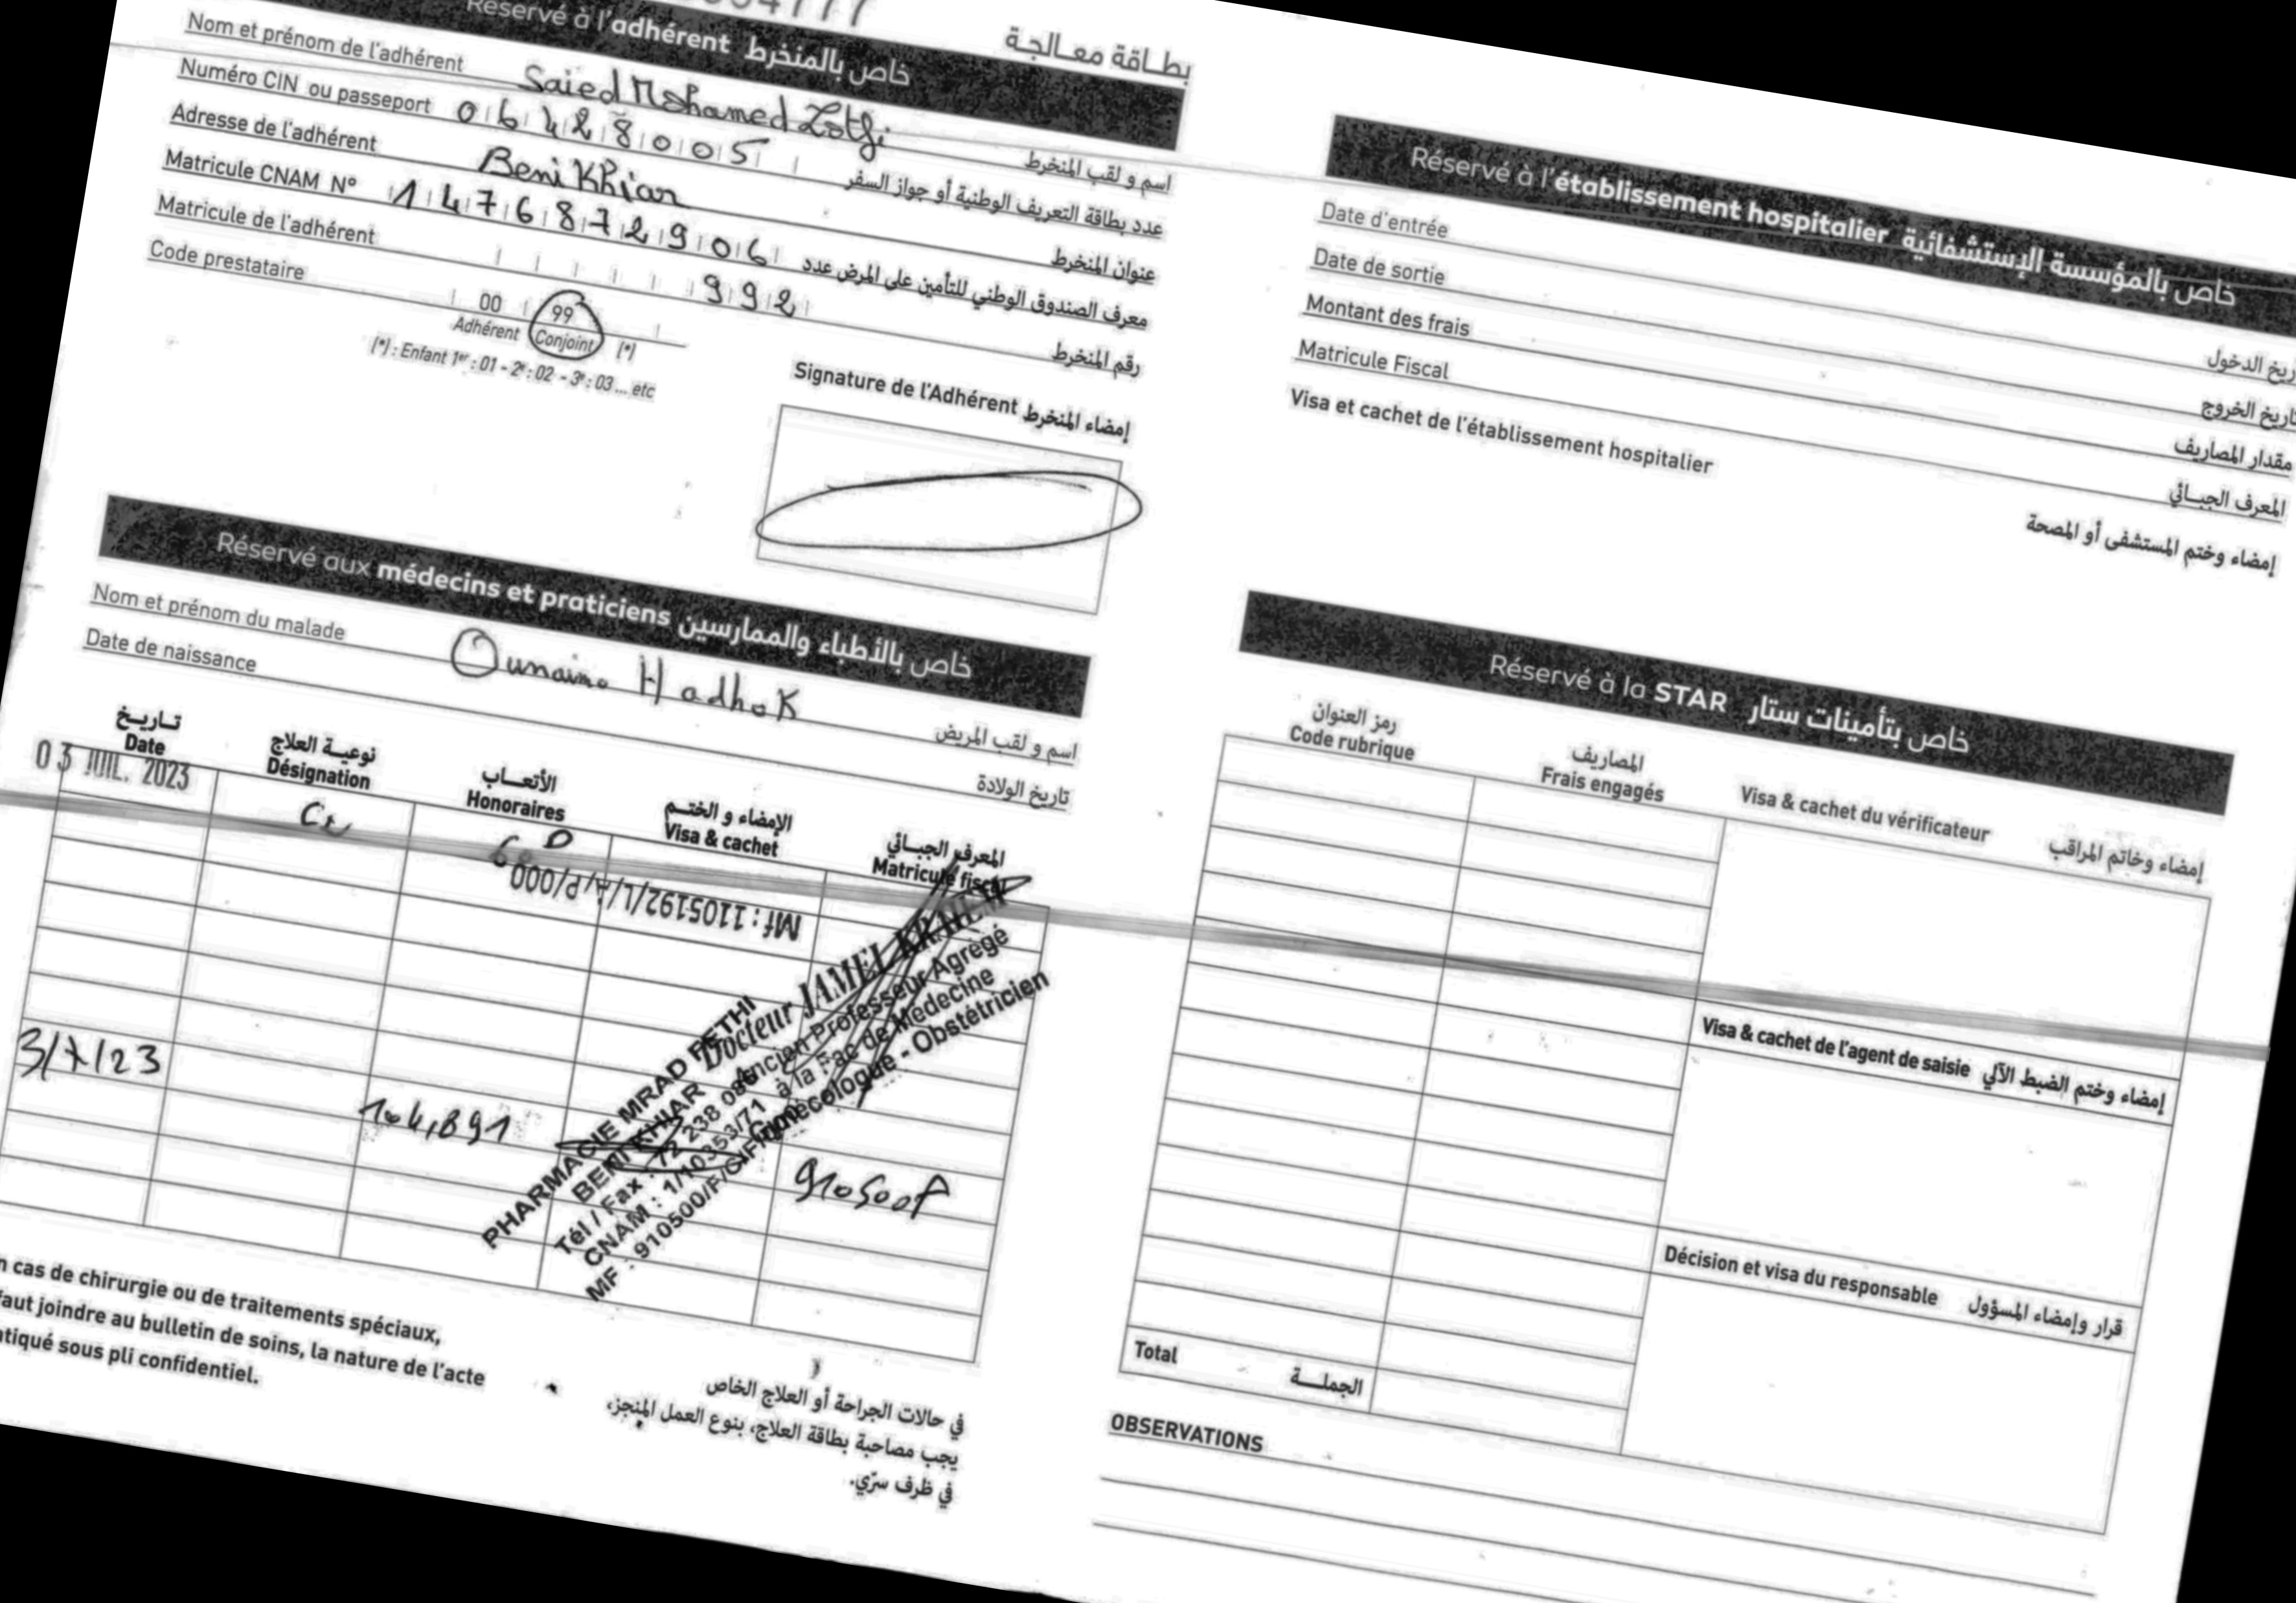 بطـاقة معـالجـة
Réservé à l'adhérent خاص بالمنخرط
Nom et prénom de l'adhérent Saied Mohamed Lotfi اسم و لقب المنخرط
Numéro CIN ou passeport 06428005 عدد بطاقة التعريف الوطنية أو جواز السفر
Adresse de l'adhérent Beni Khiar عنوان المنخرط
Matricule CNAM N° 1476872906 معرف الصندوق الوطني للتأمين على المرض عدد
Matricule de l'adhérent 992 رقم المنخرط
Code prestataire 00 99
Adhérent Conjoint (*)
(*) : Enfant 1er : 01 - 2e : 02 - 3e : 03 ... etc
Signature de l'Adhérent إمضاء المنخرط
Réservé aux médecins et praticiens خاص بالأطباء والممارسين
Nom et prénom du malade Oumaima Hadhok اسم و لقب المريض
Date de naissance تاريخ الولادة
تـاريـخ نوعيـة العلاج الأتعـاب الإمضاء و الختـم المعرف الجبـائي
Date Désignation Honoraires Visa & cachet Matricule fiscal
03 JUIL. 2023
Mf : 1105192/L/A/P/000
Docteur JAMEL
Ancien Professeur Agrégé
à la Fac de Médecine
Gynécologue - Obstétricien
3/7/23 104,891 910500F
PHARMACIE MRAD FETHI
BENI KHIAR
Tél / Fax : 72 238 086
CNAM : 1/10353/71
MF : 910500/F
n cas de chirurgie ou de traitements spéciaux,
faut joindre au bulletin de soins, la nature de l'acte
atiqué sous pli confidentiel.
في حالات الجراحة أو العلاج الخاص
يجب مصاحبة بطاقة العلاج، بنوع العمل المنجز،
في ظرف سرّي.
Réservé à l'établissement hospitalier خاص بالمؤسسة الإستشفائية
Date d'entrée ريخ الدخول
Date de sortie تاريخ الخروج
Montant des frais مقدار المصاريف
Matricule Fiscal المعرف الجبـائي
Visa et cachet de l'établissement hospitalier إمضاء وختم المستشفى أو المصحة
Réservé à la STAR خاص بتأمينات ستار
رمز العنوان المصاريف
Code rubrique Frais engagés Visa & cachet du vérificateur إمضاء وخاتم المراقب
Visa & cachet de l'agent de saisie إمضاء وختم الضبط الآلي
Décision et visa du responsable قرار وإمضاء المسؤول
Total الجملـــة
OBSERVATIONS